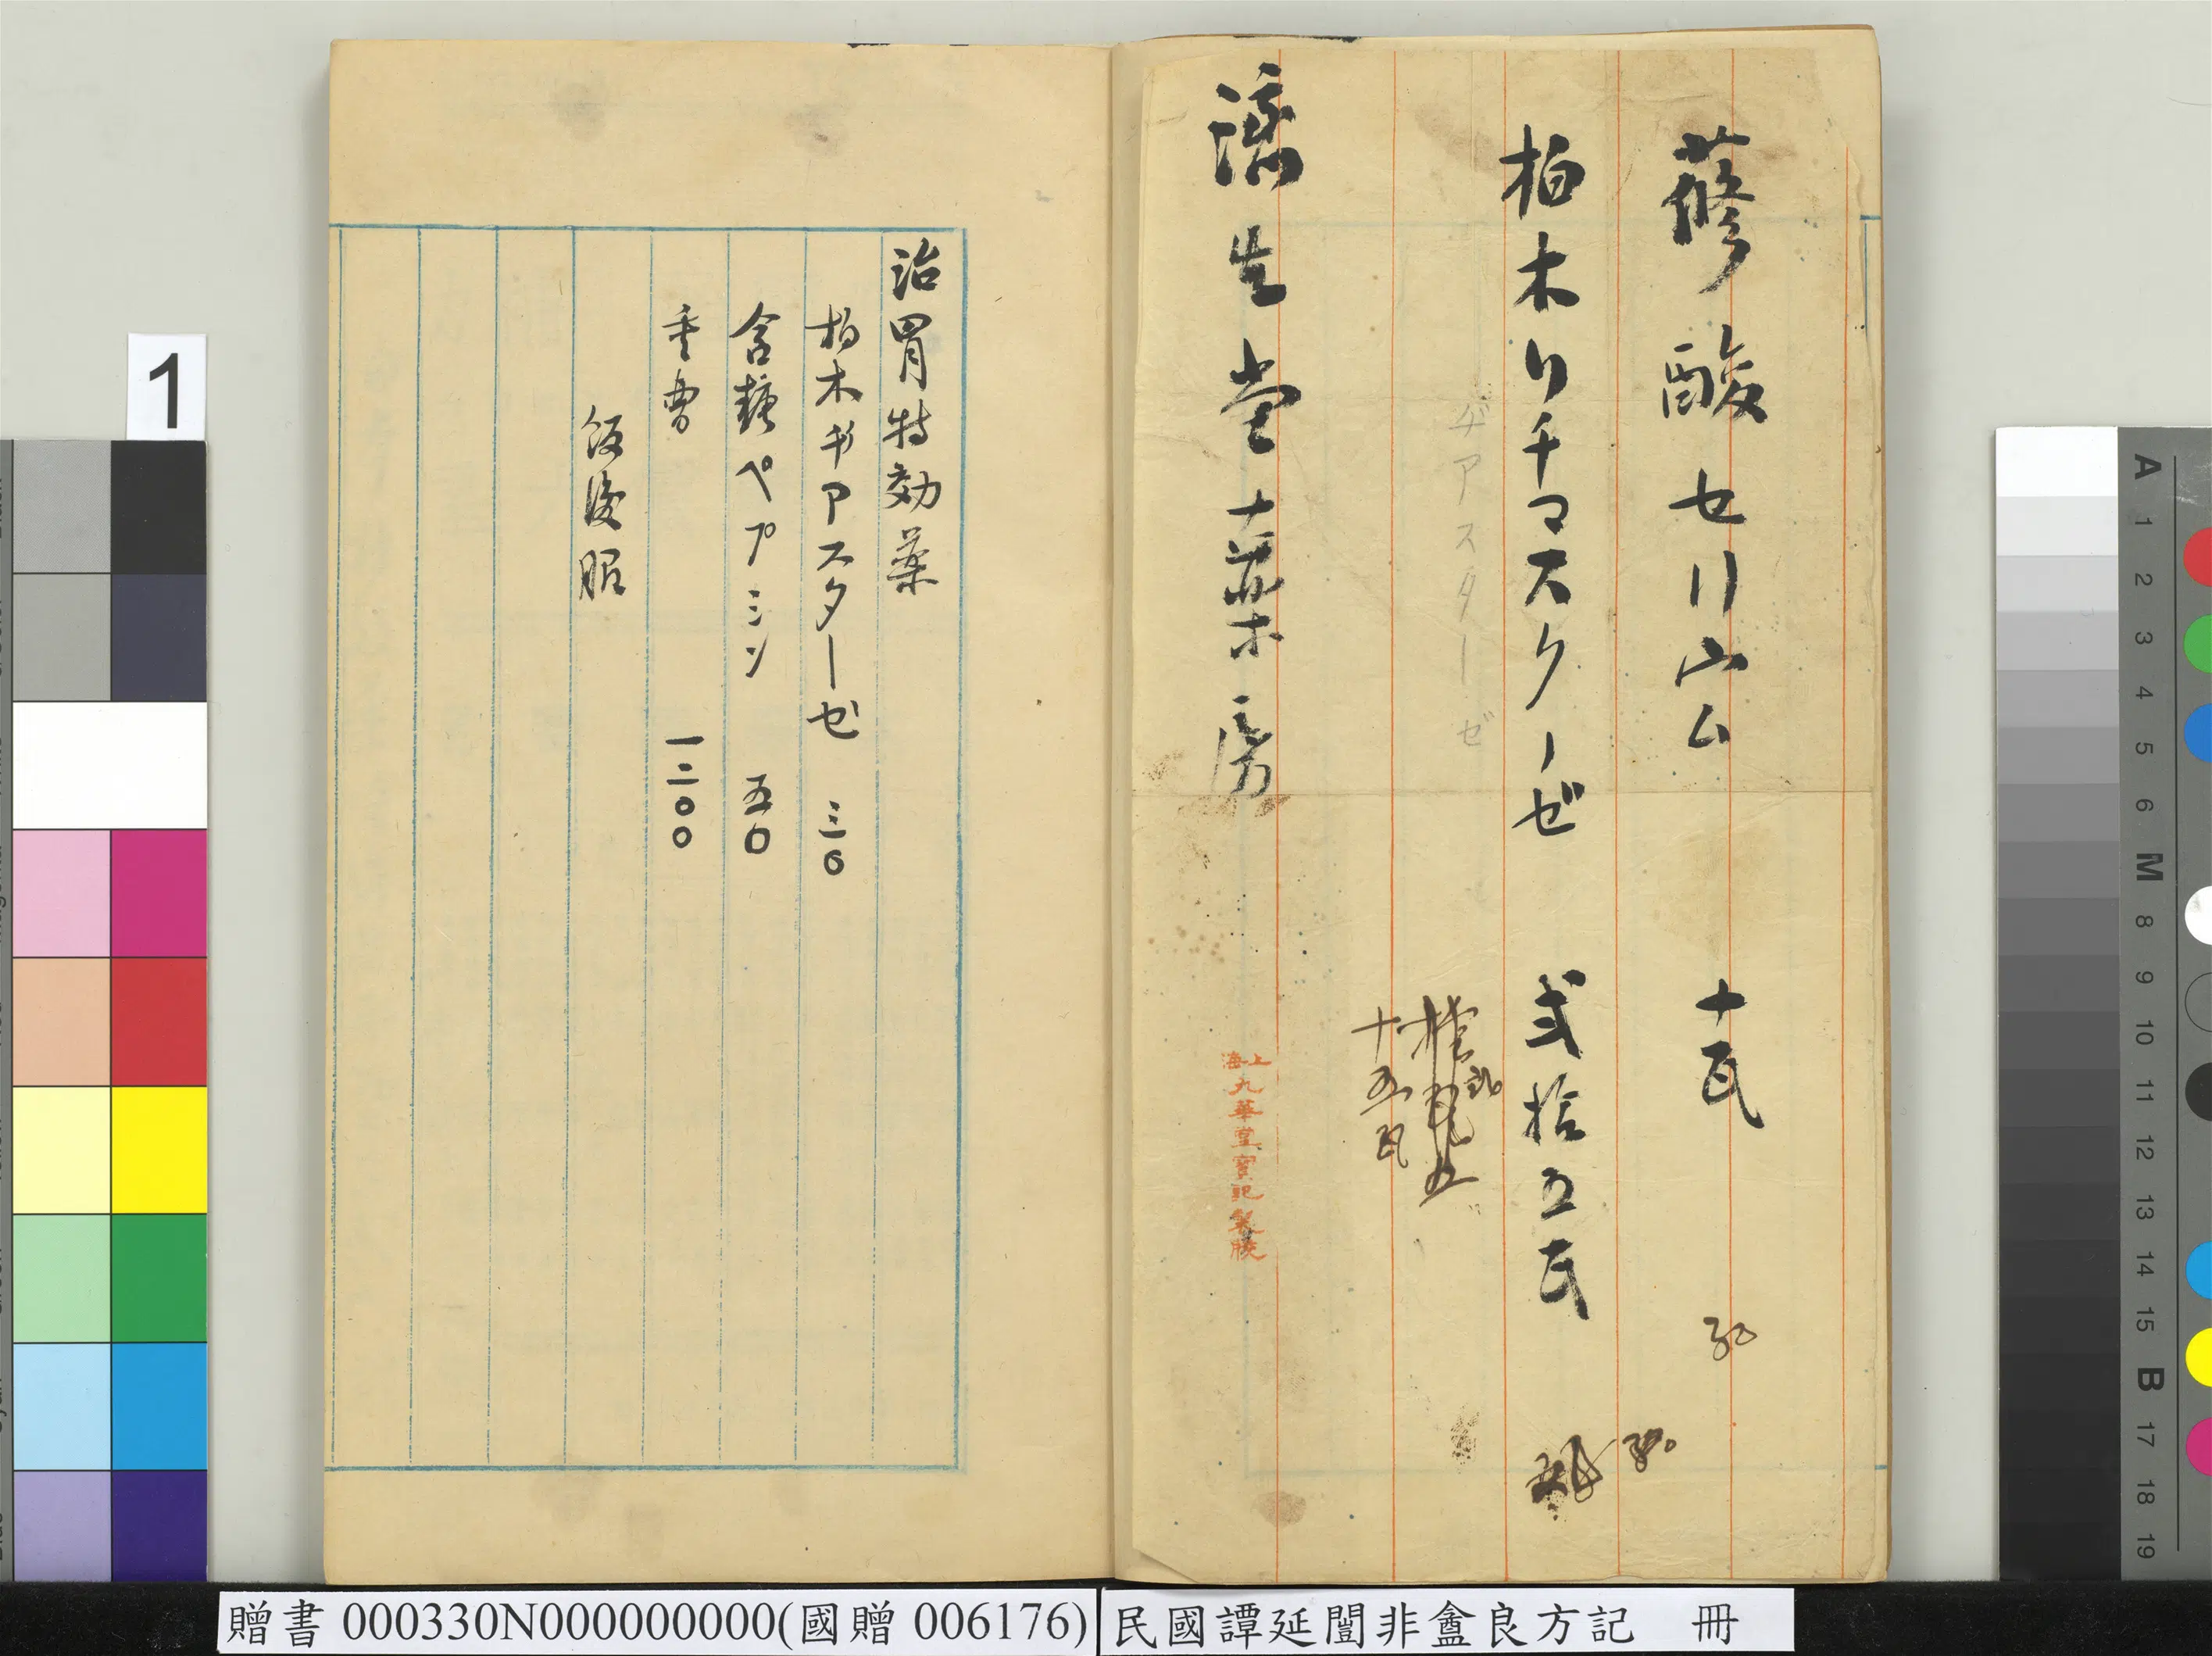 蓚酸セリ山ム 十瓦
柏木リチマスクーゼ 弍拾五瓦
ヂアスターゼ
十五瓦
濟生堂大薬房
上海九華堂寶記製牋
治胃特効薬
柏木ヂアスターゼ 三〇
含糖ペプミン 五〇
重曹 一二〇〇
飯後服
1
A 1 2 3 4 5 6 M 8 9 10 11 12 13 14 15 B 17 18 19
贈書 000330N000000000(國贈 006176)
民國譚延闓非盦良方記 冊